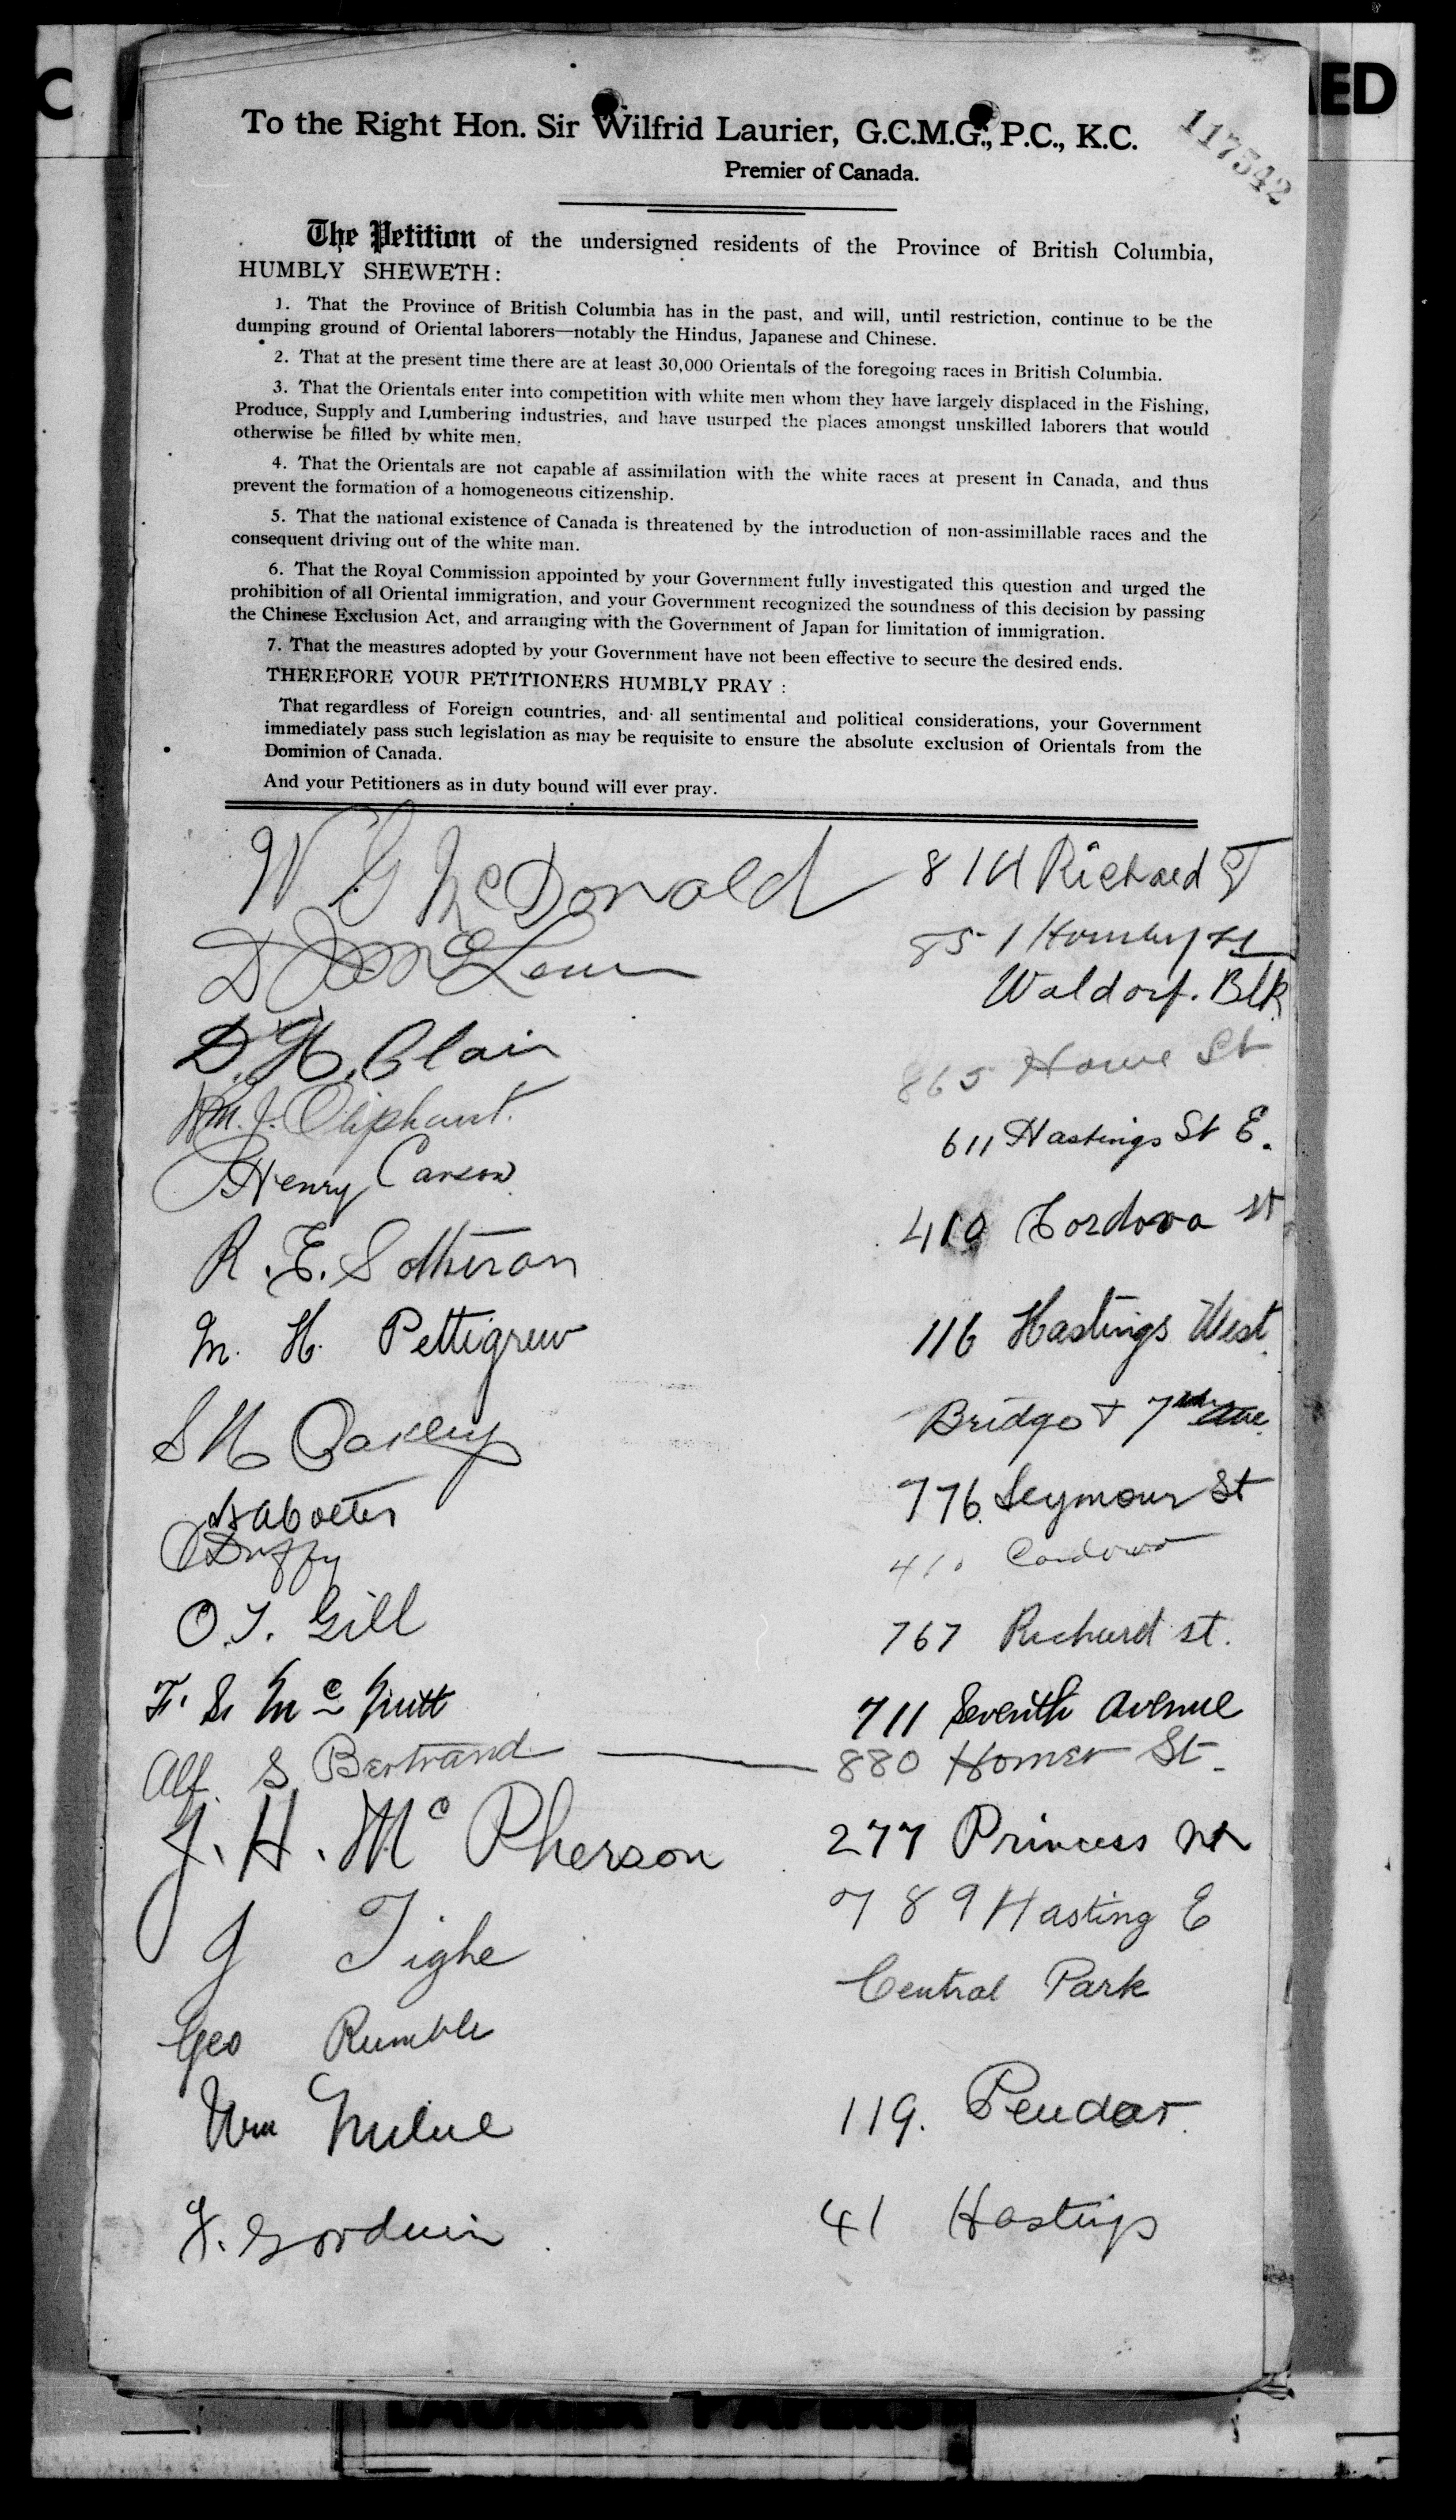 C
ED
To the Right Hon. Sir Wilfrid Laurier, G.C.M.G., P.C., K.C.
117542
Premier of Canada.
The Petition of the undersigned residents of the Province of British Columbia,
HUMBLY SHEWETH:
1. That the Province of British Columbia has in the past, and will, until restriction, continue to be the
dumping ground of Oriental laborers—notably the Hindus, Japanese and Chinese.
2. That at the present time there are at least 30,000 Orientals of the foregoing races in British Columbia.
3. That the Orientals enter into competition with white men whom they have largely displaced in the Fishing,
Produce, Supply and Lumbering industries, and have usurped the places amongst unskilled laborers that would
otherwise be filled by white men.
4. That the Orientals are not capable af assimilation with the white races at present in Canada, and thus
prevent the formation of a homogeneous citizenship.
5. That the national existence of Canada is threatened by the introduction of non-assimillable races and the
consequent driving out of the white man.
6. That the Royal Commission appointed by your Government fully investigated this question and urged the
prohibition of all Oriental immigration, and your Government recognized the soundness of this decision by passing
the Chinese Exclusion Act, and arranging with the Government of Japan for limitation of immigration.
7. That the measures adopted by your Government have not been effective to secure the desired ends.
THEREFORE YOUR PETITIONERS HUMBLY PRAY :
That regardless of Foreign countries, and all sentimental and political considerations, your Government
immediately pass such legislation as may be requisite to ensure the absolute exclusion of Orientals from the
Dominion of Canada.
And your Petitioners as in duty bound will ever pray.
W G McDonald 814 Richard St
D 851 Hornby St
Waldorf. Blk
D. H. Blair
865 Howe St
Wm. J. Oliphant.
611 Hastings St E.
Henry Carson
410 Cordova St
R. E. Sotheran
116 Hastings West.
M. H. Pettigrew
Bridge & 7th Ave.
S H Oakley
776 Seymour St
Duffy 410 Cordova
O. T. Gill 767 Richard st.
F. S. McNutt 711 Seventh Avenue
Alf. S. Bertrand — 880 Homer St.
J. H. McPherson 277 Princess
J Tighe 789 Hasting E
Central Park
Geo Rumble
Wm Milne 119. Pender.
F. Goodwin 41 Hastings
LAURIER PAPERS